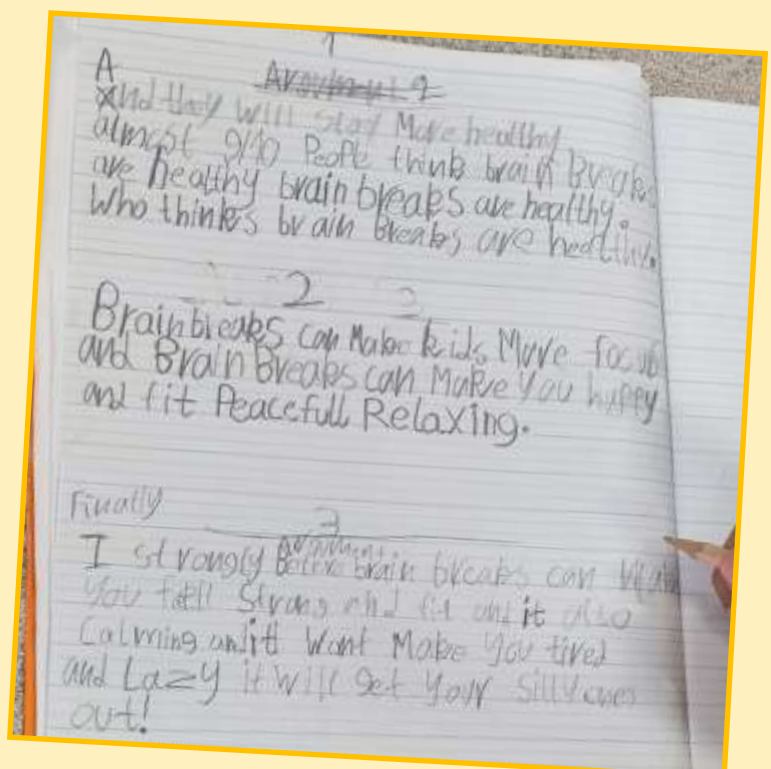 1
Argument 2
A
And they will stay More healthy
almost 9/10 People think brain Breaks
are healthy brain breaks are healthy.
Who thinks brain breaks are healthy.
2
Brain breaks can Make kids More focus
and Brain Breaks can Make You happy
and fit Peacefull Relaxing.
Finally
3
Argument
I strongly Believe brain breaks can Make
You feell Strong and fit and it also
Calming and it Wont Make You tired
and Lazy it Will Get Your Silly
out!